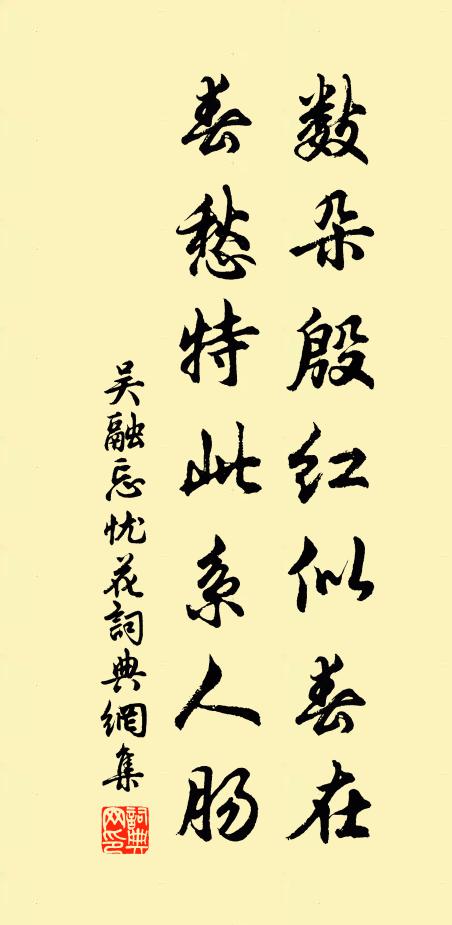 数朵殷红似春在
春愁特此系人肠
吴融忘忧花詞典網集
詞典網印